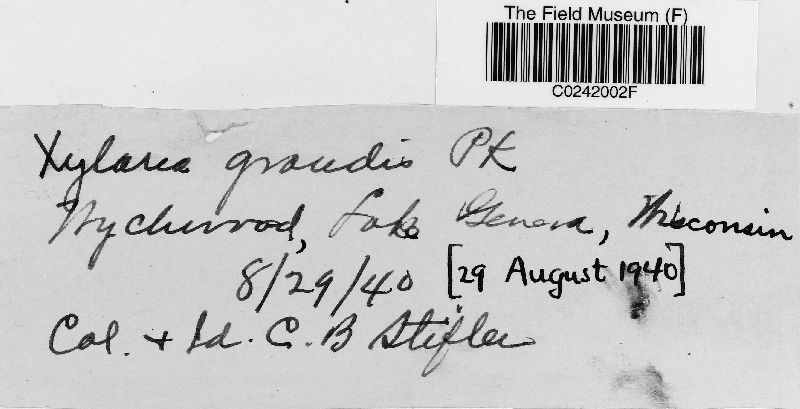 The Field Museum (F)
C0242002F
Xylaria grandis Pk
Wychwood, Lake Geneva, Wisconsin
8/29/40 [29 August 1940]
Col. + Id. C. B Stifler